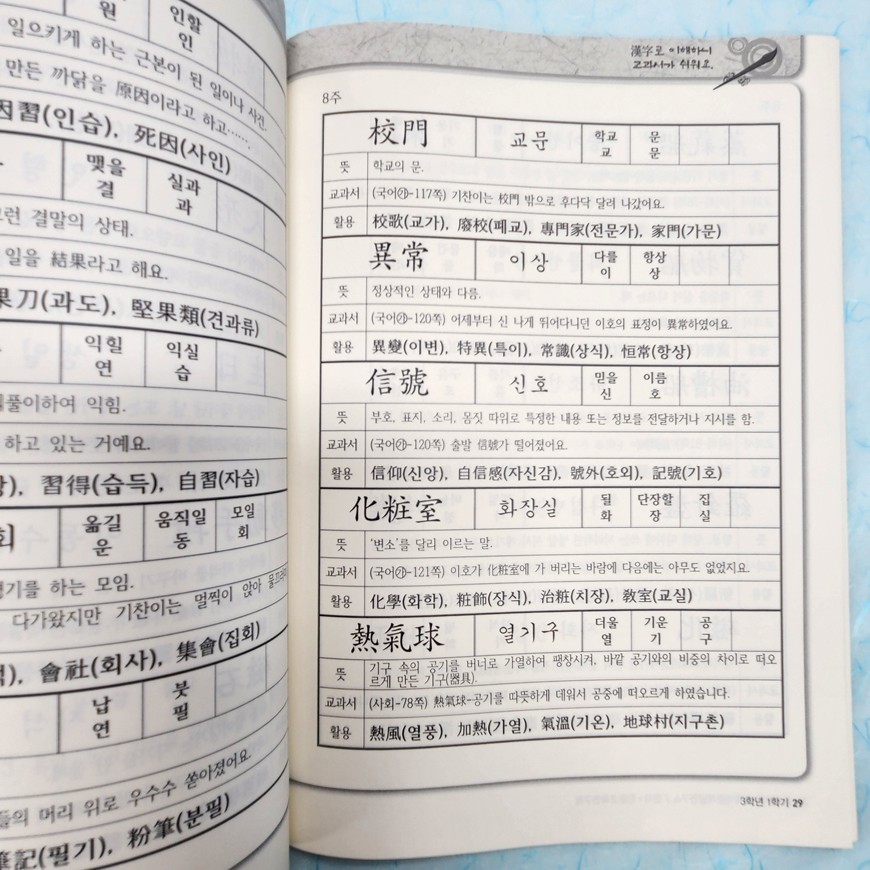 원
인할
인
일으키게 하는 근본이 된 일이나 사건.
만든 까닭을 原因이라고 하고……
因習(인습), 死因(사인)
맺을
결
실과
과
결말의 상태.
일을 結果라고 해요.
果刀(과도), 堅果類(견과류)
익힐
연
익실
습
풀이하여 익힘.
하고 있는 거예요.
習得(습득), 自習(자습)
회
옮길
운
움직일
동
모일
회
를 하는 모임.
다가왔지만 기찬이는 멀찍이 앉아
會社(회사), 集會(집회)
납
연
붓
필
머리 위로 우수수 쏟아졌어요.
筆記(필기), 粉筆(분필)
漢字로 이해하니
교과서가 쉬워요.
8주
校門 교문 학교 교 문 문
뜻 학교의 문.
교과서 (국어㉮-117쪽) 기찬이는 校門 밖으로 후다닥 달려 나갔어요.
활용 校歌(교가), 廢校(폐교), 專門家(전문가), 家門(가문)
異常 이상 다를 이 항상 상
뜻 정상적인 상태와 다름.
교과서 (국어㉮-120쪽) 어제부터 신 나게 뛰어다니던 이호의 표정이 異常하였어요.
활용 異變(이변), 特異(특이), 常識(상식), 恒常(항상)
信號 신호 믿을 신 이름 호
뜻 부호, 표지, 소리, 몸짓 따위로 특정한 내용 또는 정보를 전달하거나 지시를 함.
교과서 (국어㉮-120쪽) 출발 信號가 떨어졌어요.
활용 信仰(신앙), 自信感(자신감), 號外(호외), 記號(기호)
化粧室 화장실 될 화 단장할 장 집 실
뜻 '변소'를 달리 이르는 말.
교과서 (국어㉮-121쪽) 이호가 化粧室에 가 버리는 바람에 다음에는 아무도 없었지요.
활용 化學(화학), 粧飾(장식), 治粧(치장), 敎室(교실)
熱氣球 열기구 더울 열 기운 기 공 구
뜻 기구 속의 공기를 버너로 가열하여 팽창시켜, 바깥 공기와의 비중의 차이로 떠오
르게 만든 기구(器具).
교과서 (사회-78쪽) 熱氣球-공기를 따뜻하게 데워서 공중에 떠오르게 하였습니다.
활용 熱風(열풍), 加熱(가열), 氣溫(기온), 地球村(지구촌)
3학년 1학기 29